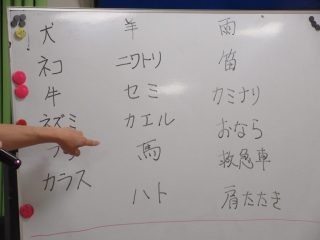 犬
ネコ
牛
ネズミ
カラス
羊
ニワトリ
セミ
カエル
馬
ハト
雨
笛
カミナリ
おなら
救急車
肩たたき